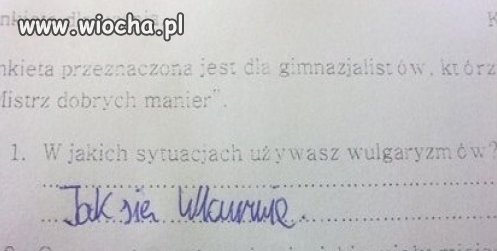 www.wiocha.pl
nkieta przeznaczona jest dla gimnazjalistów, którz
Mistrz dobrych manier".
1. W jakich sytuacjach używasz wulgaryzmów?
Jak się wkurwię.